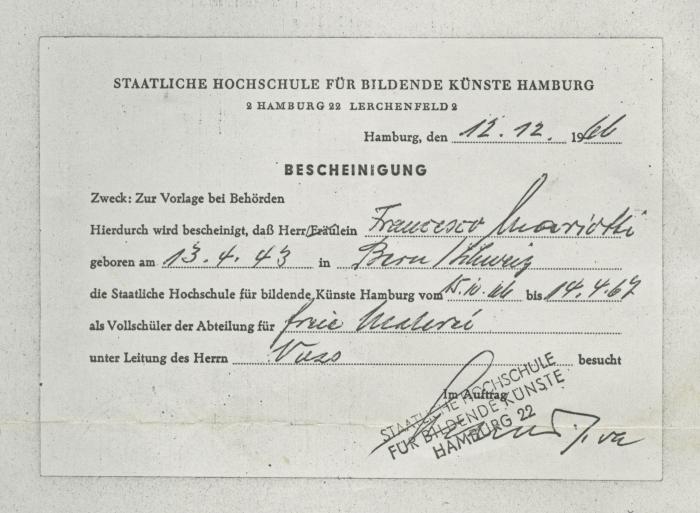 STAATLICHE HOCHSCHULE FÜR BILDENDE KÜNSTE HAMBURG
2 HAMBURG 22 LERCHENFELD 2
Hamburg, den 12. 12. 1966
BESCHEINIGUNG
Zweck: Zur Vorlage bei Behörden
Hierdurch wird bescheinigt, daß Herr/Fräulein Francesco Mariotti
geboren am 13. 4. 43 in Bern/Schweiz
die Staatliche Hochschule für bildende Künste Hamburg vom 15.10.66 bis 14.4.67
als Vollschüler der Abteilung für freie Malerei
unter Leitung des Herrn Voss besucht
Im Auftrag
STAATLICHE HOCHSCHULE
FÜR BILDENDE KÜNSTE
HAMBURG 22